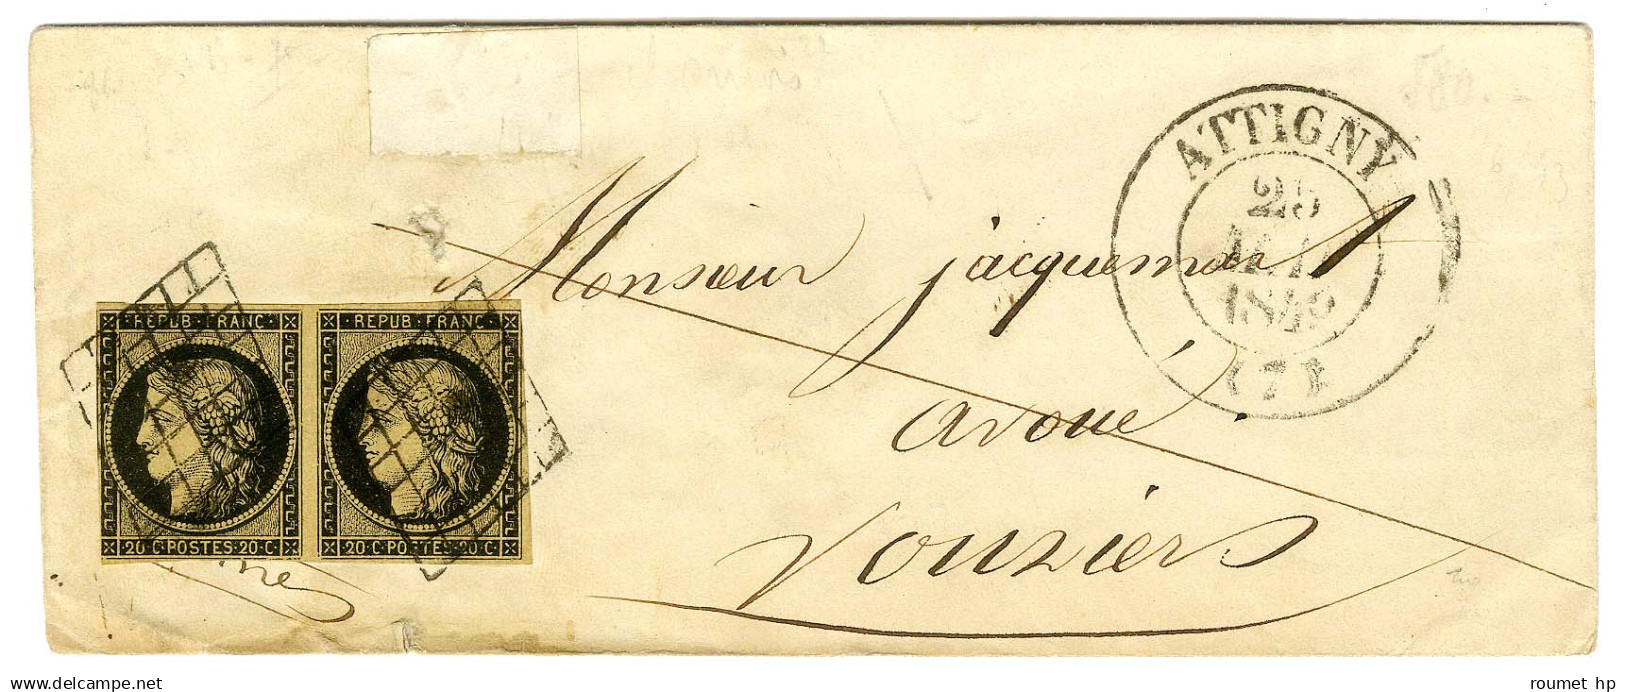 ATTIGNY
25
MAI
1849
(7)
Monsieur jacquemart
avoué
Vouziers
REPUB FRANC
20·C·POSTES·20·C·
REPUB FRANC
20·C·POSTES·20·C·
roumet hp